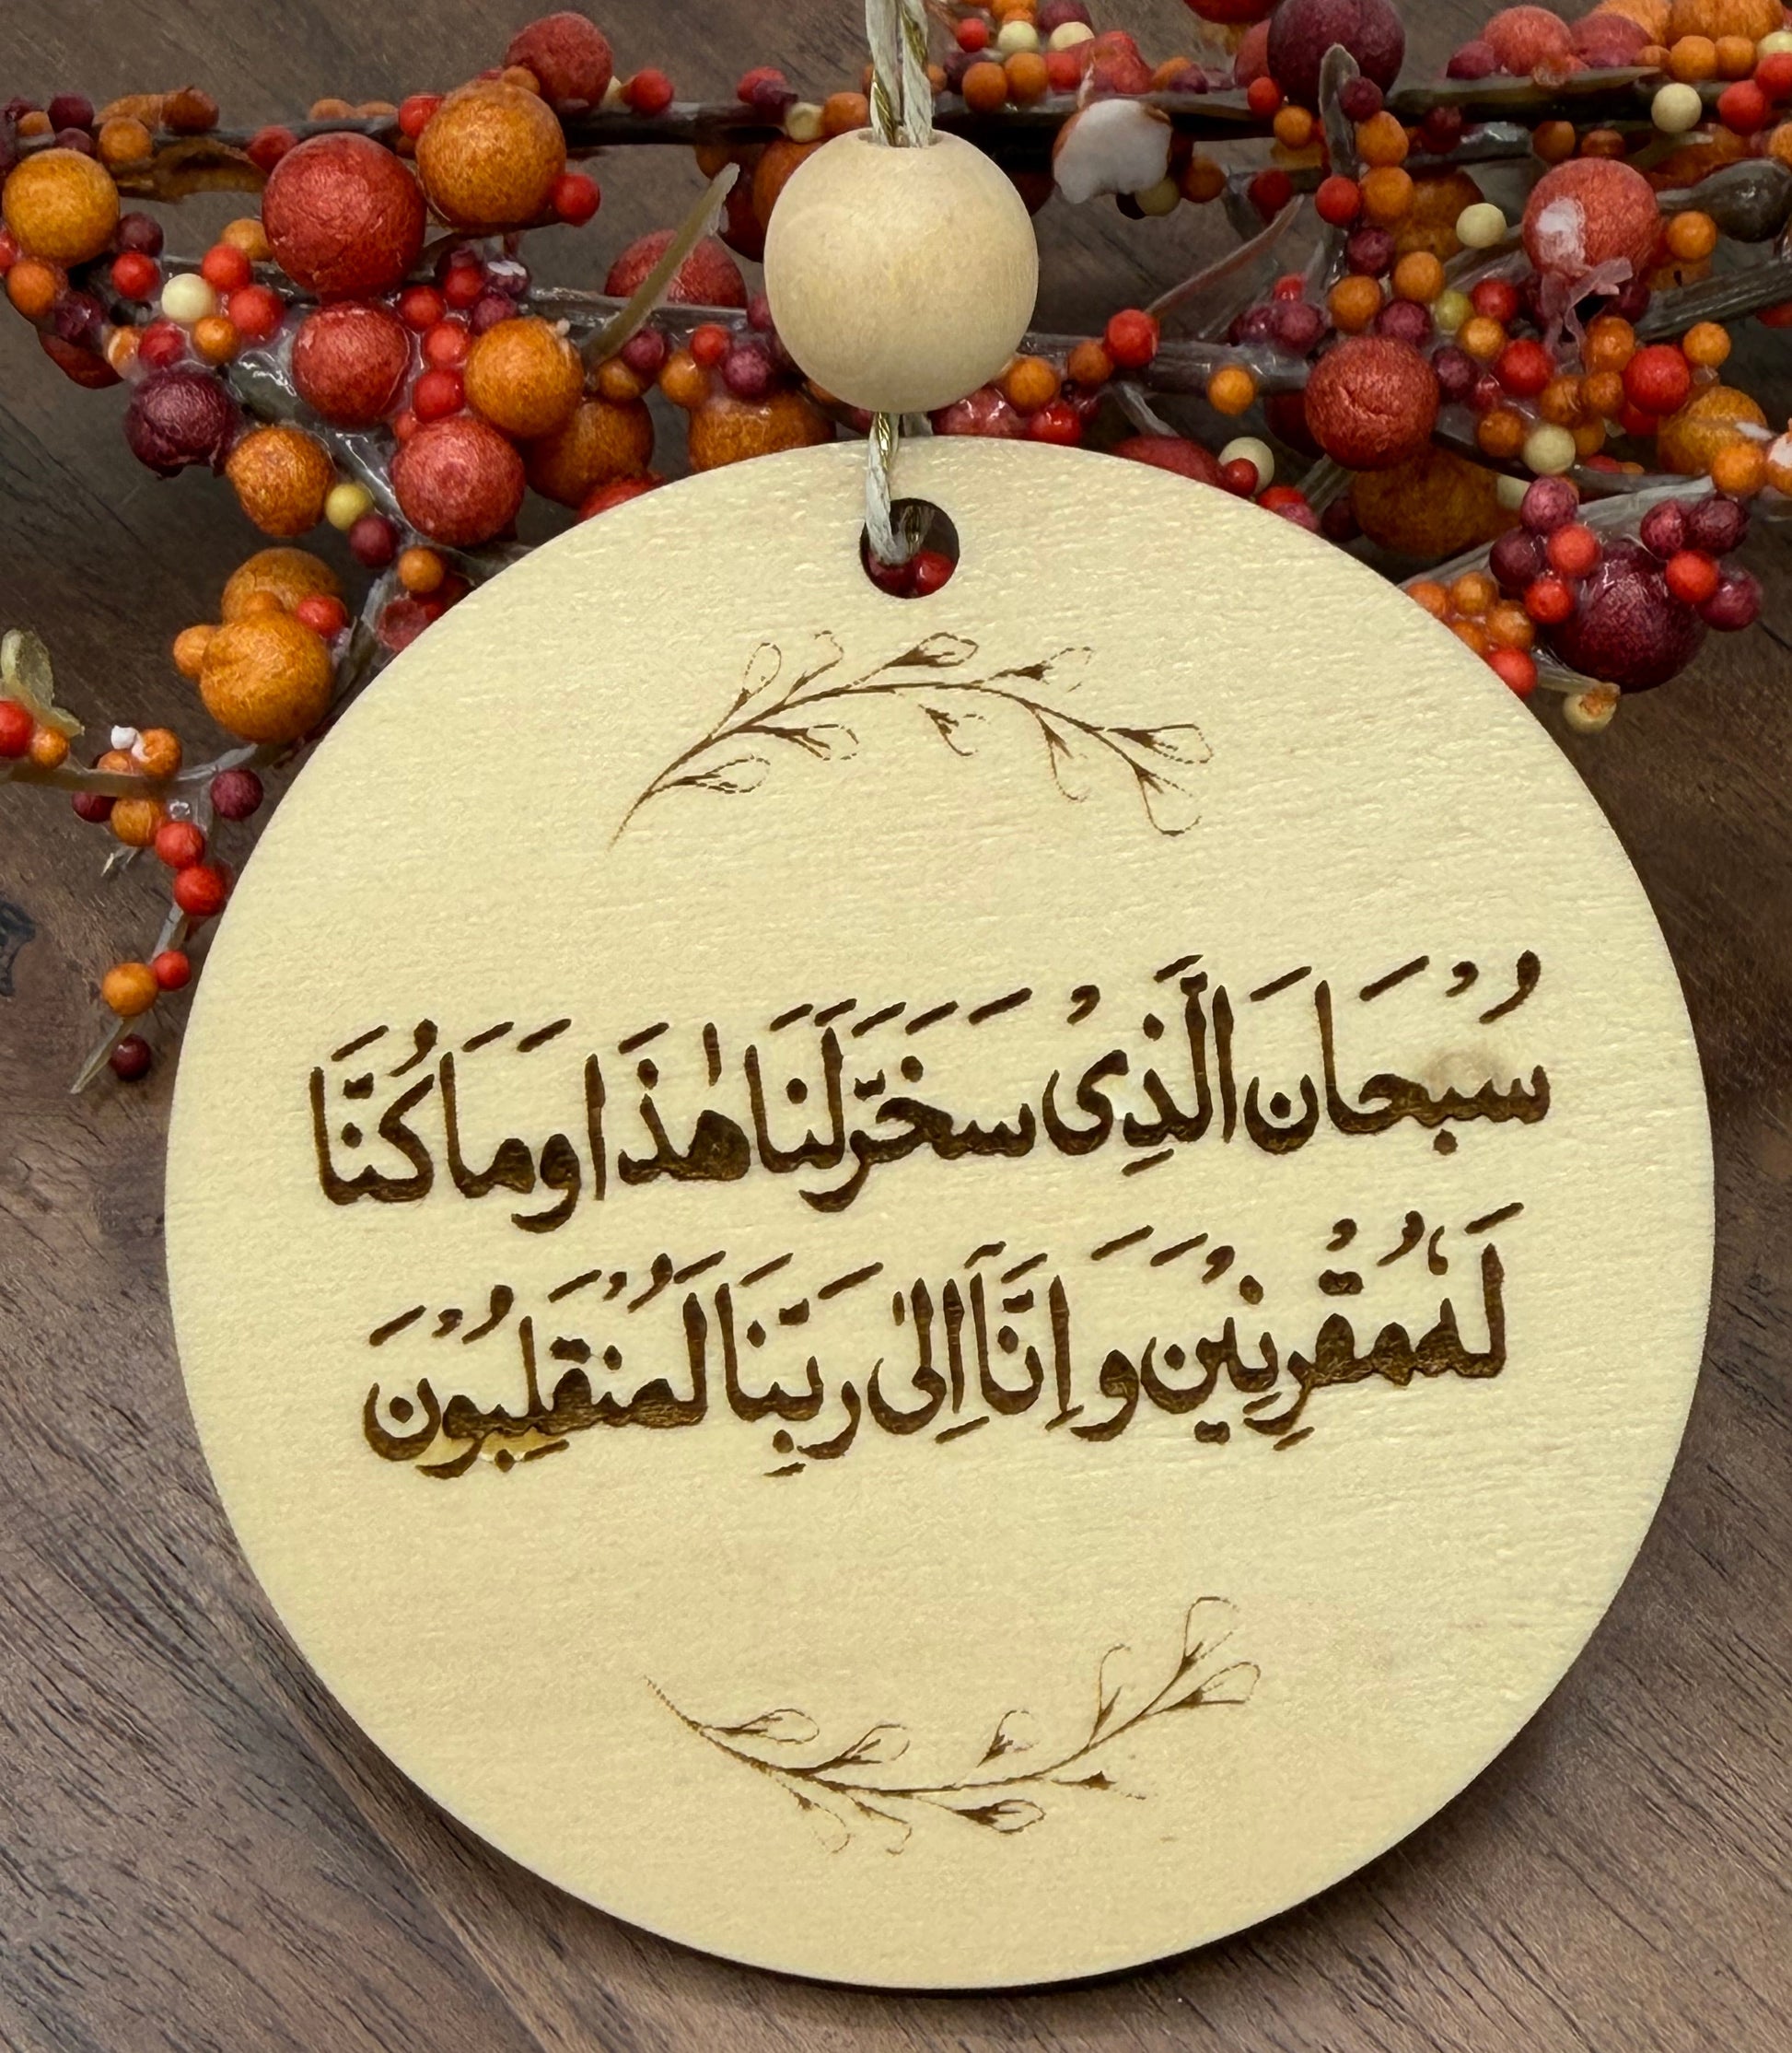 سُبْحَانَ الَّذِیْ سَخَّرَ لَنَا هٰذَا وَمَا كُنَّا
لَهُ مُقْرِنِيْنَ وَ اِنَّآ اِلىٰ رَبِّنَا لَمُنْقَلِبُوْنَ